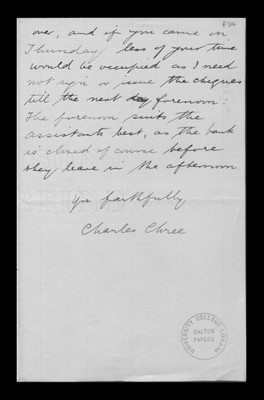 over, and if you came on
Thursday less of your time
would be occupied as I need
not sign or issue the cheques
till the next day forenoon:
The forenoon suits the
assistants best, as the bank
is closed of course before
they leave in the afternoon
Yrs faithfully
Charles Chree
UNIVERSITY COLLEGE LONDON
GALTON
PAPERS